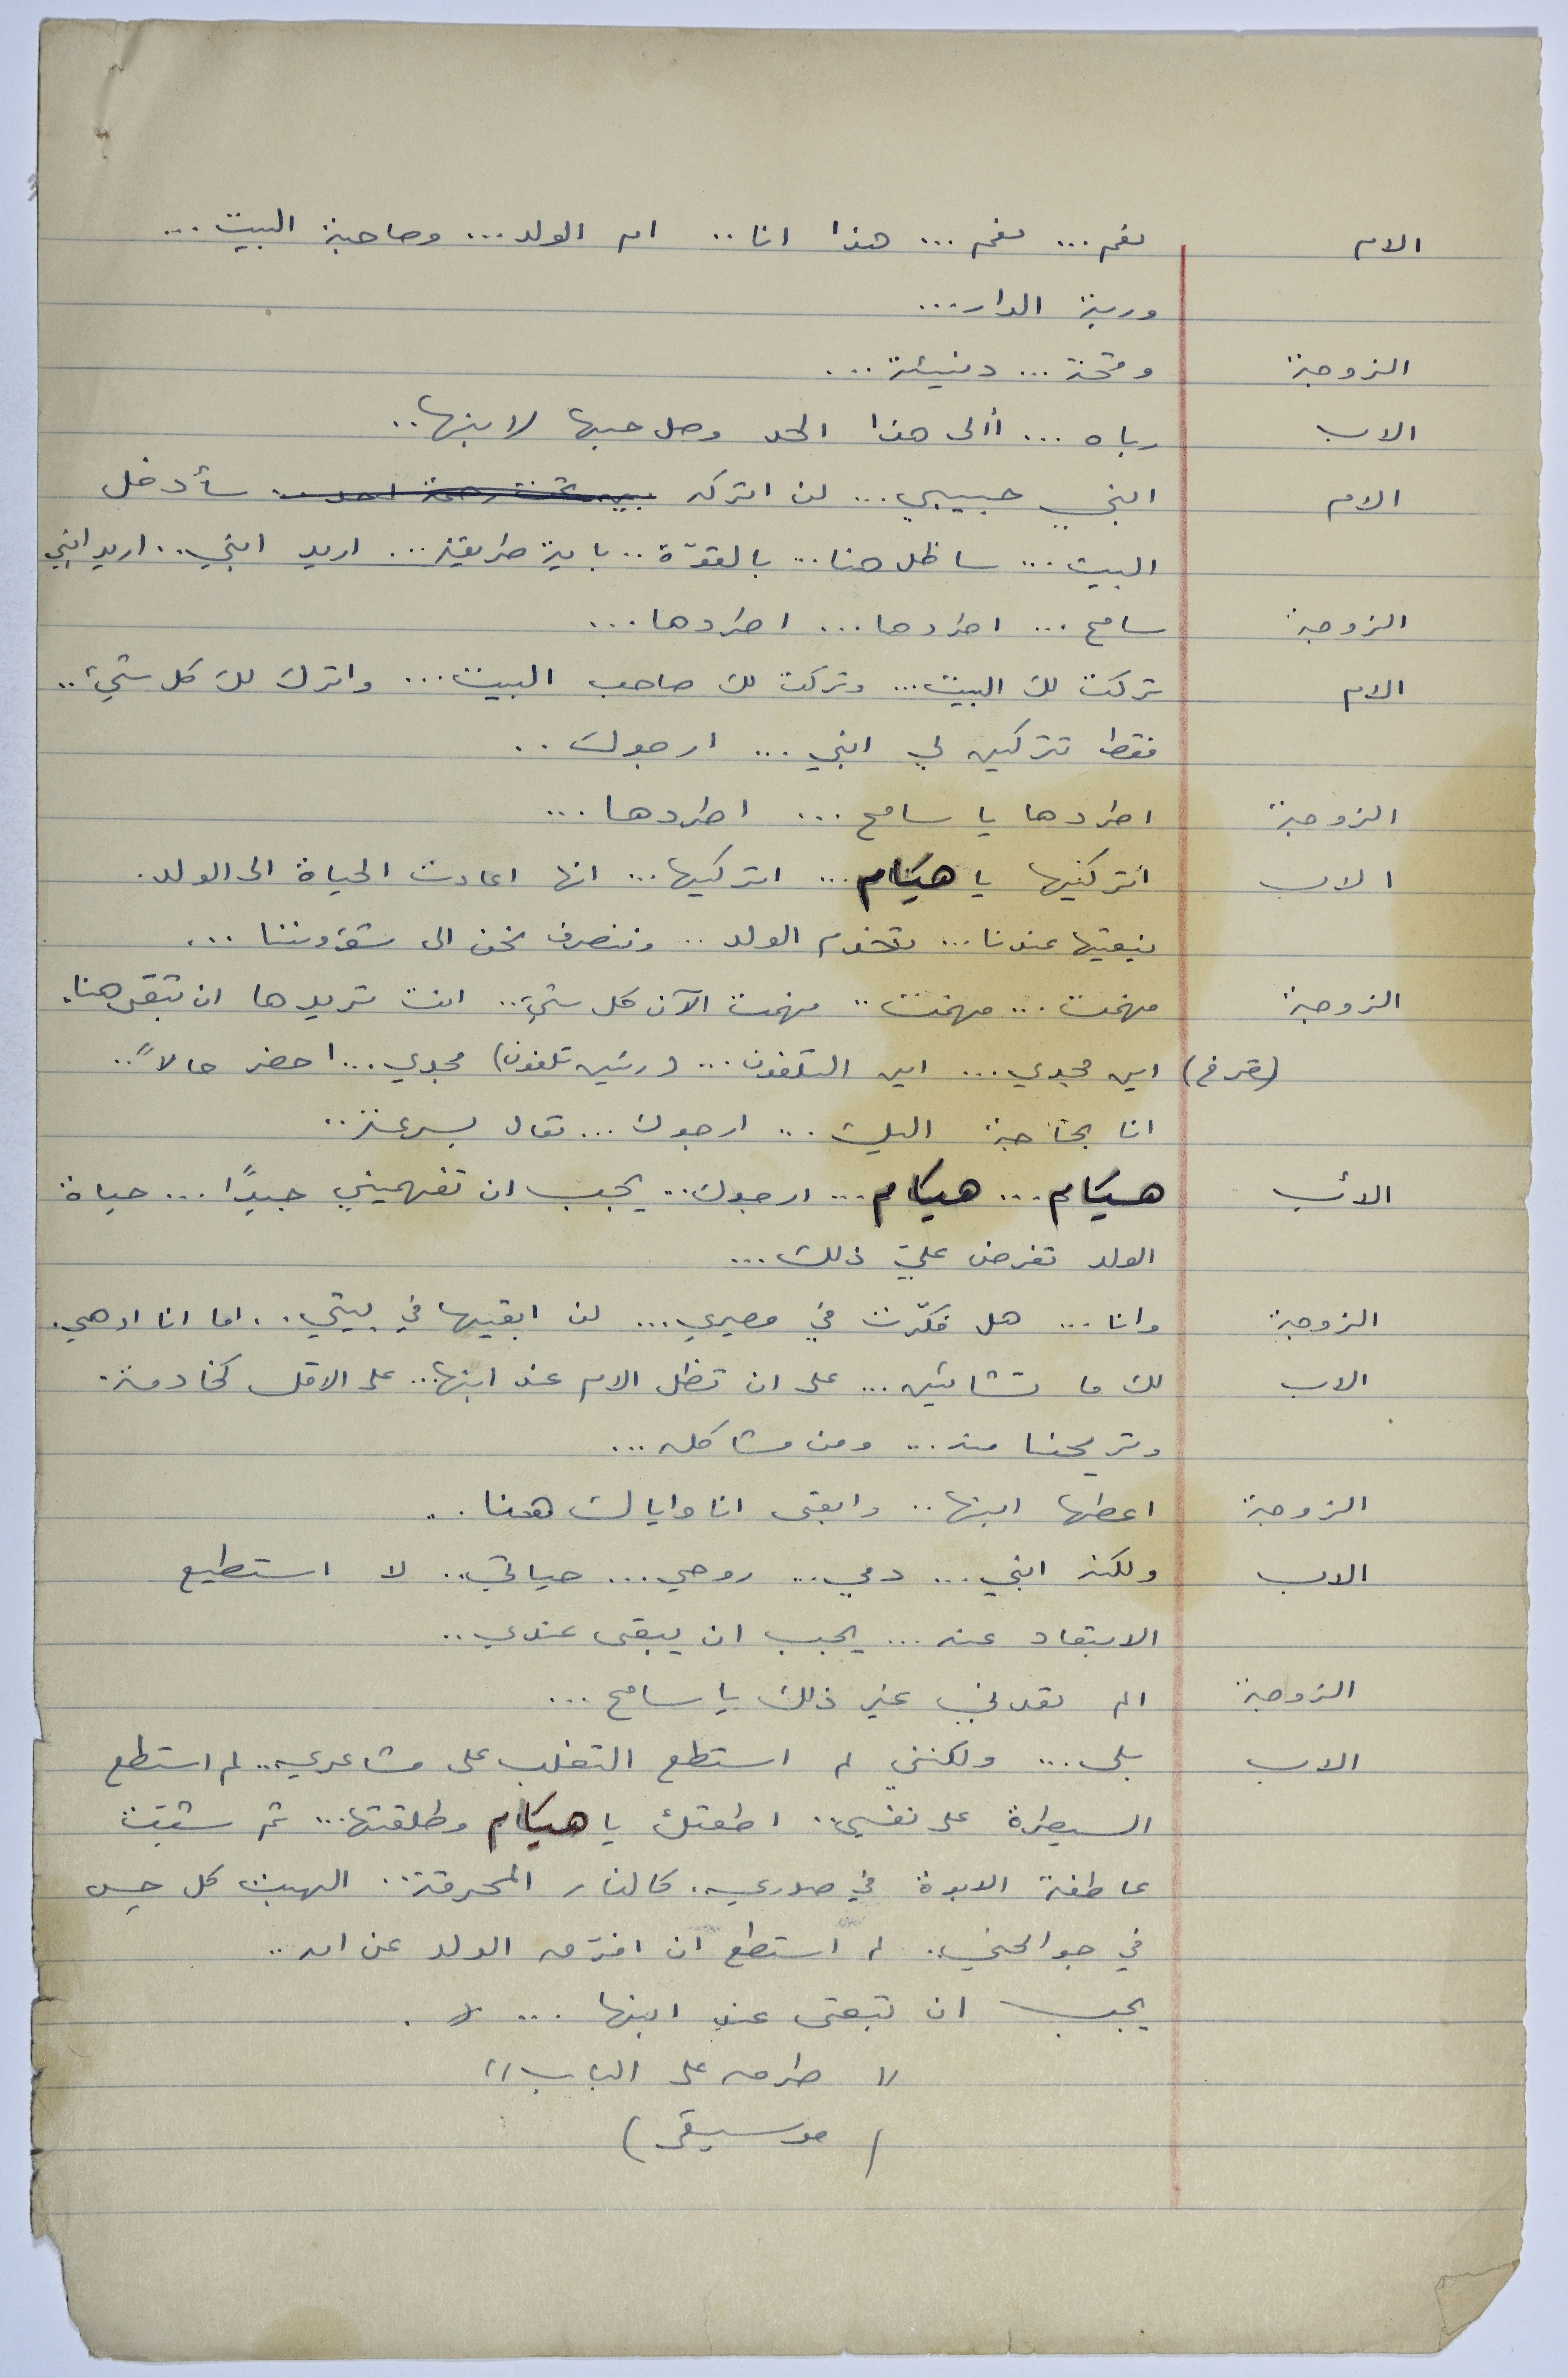 الام نعم... نعم... هذا انا.. ام الولد... وصاحبة البيت...
وربة الدار...
الزوجة وقحة... دنيئة...
الاب رباه... أالى هذا الحد وصل حبها لابنها..
الام ابني حبيبي... لن اتركه سأدخل
البيت... ساظل هنا... بالقوّة.. باية طريقة... اريد ابني.. اريد ابني
الزوجة سامح... اطردها... اطردها...
الام تركت لك البيت... وتركت لك صاحب البيت... واترك لك كل شيء..
فقط تتركين لي ابني... ارجوك..
الزوجة اطردها يا سامح... اطردها...
الاب أتركيها يا هيام... اتركيها... انها اعادت الحياة الى الولد.
نبقيها عندنا... تخدم الولد.. وننصرف نحن الى شؤوننا...
الزوجة فهمت... فهمت.. فهمت الآن كل شيء.. انت تريدها ان تبقى هنا.
(تصرخ) اين مجدي... اين التلفون... (رنين تلفون) مجدي... احضر حالاً..
انا بحاجة اليك... ارجوك... تعال بسرعة..
الأب هيام... هيام... ارجوك.. يجب ان تفهميني جيدًا... حياة
الولد تفرض عليّ ذلك...
الزوجة وانا... هل فكّرت في مصيري... لن ابقيها في بيتي.. اما انا او هي.
الاب لك ما تشائين... على ان تظل الام عند ابنها... على الاقل كخادمة.
وتريحنا منه... ومن مشاكله...
الزوجة اعطها ابنها.. وابقى انا واياك هنا..
الاب ولكنه ابني... دمي... روحي... حياتي.. لا استطيع
الابتعاد عنه... يجب ان يبقى عندي..
الزوجة الم تعدني غير ذلك يا سامح...
الاب بلى... ولكنني لم استطع التغلب على مشاعري.. لم استطع
السيطرة على نفسي.. اطعتك يا هيام وطلقتها... ثم شبّت
عاطفة الابوة في صدري. كالنار المحرقة.. الهبت كل حس
في جوانحي.. لم استطع ان افرق الولد عن امه..
يجب ان تبقى عند ابنها...
" طرق على الباب "
( موسيقى )